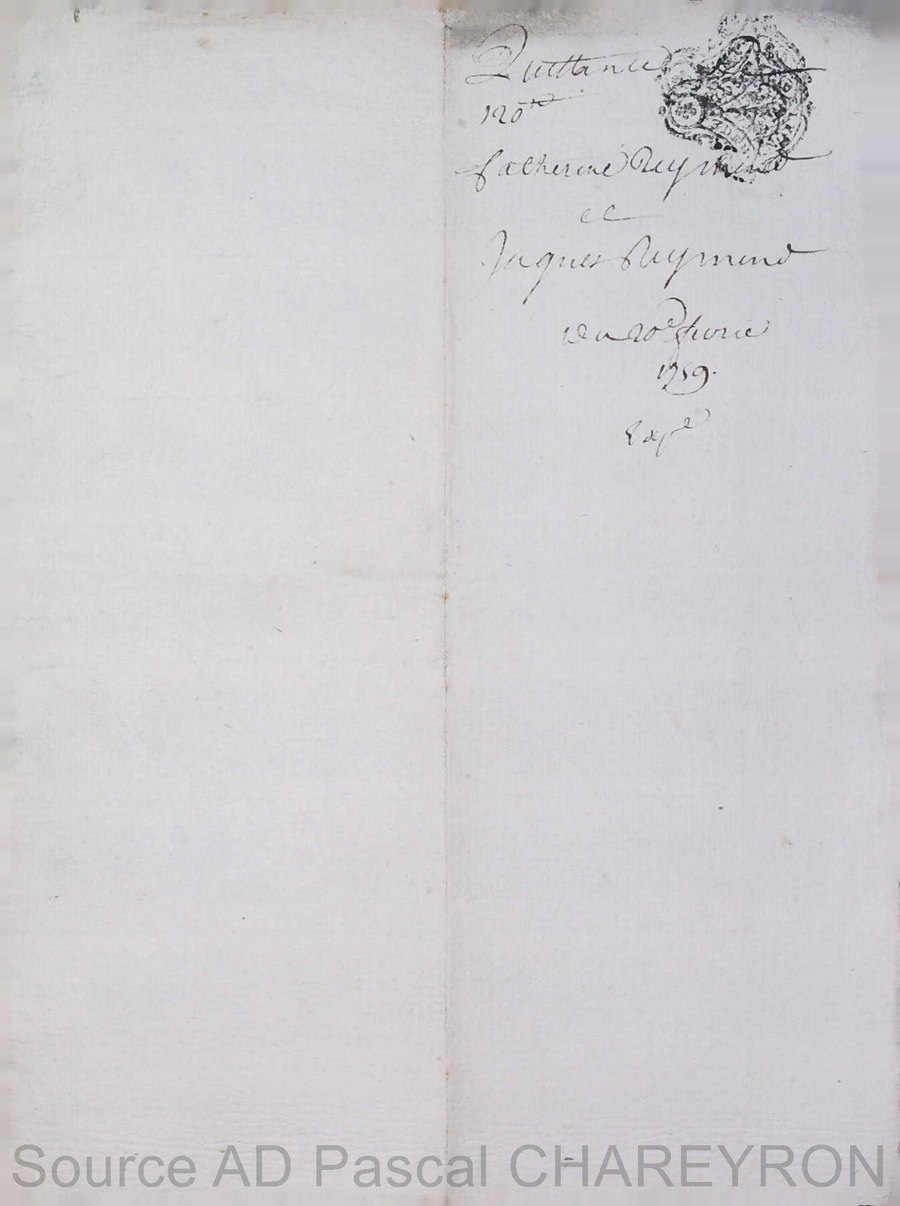 Quittance
120
Catherine Reymond
et
Jaques Reymond
Du 20e fevrie
1759.
Expe
Source AD Pascal CHAREYRON